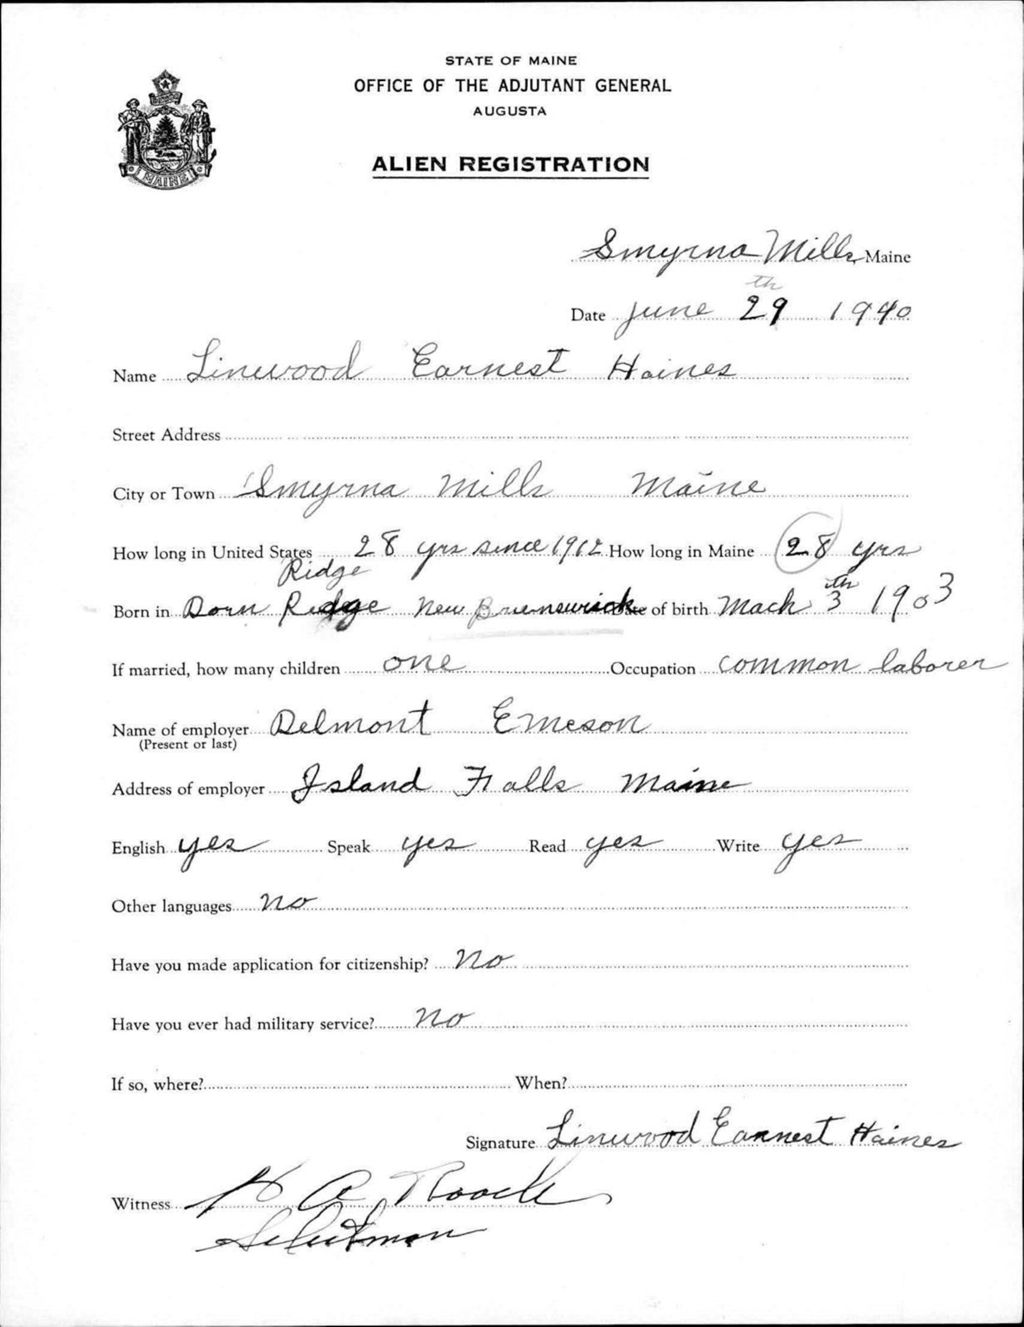 STATE OF MAINE
OFFICE OF THE ADJUTANT GENERAL
AUGUSTA
MAINE
ALIEN REGISTRATION
Smyrna Mills, Maine
Date June 29th 1940
Name Linwood Earnest Haines
Street Address
City or Town Smyrna Mills Maine
How long in United States 28 yrs since 1912 How long in Maine 28 yrs
Ridge
Born in Dorn Ridge New Brunswick of birth Mach 3th 1903
If married, how many children one Occupation common laborer
Name of employer Delmont Emeson
(Present or last)
Address of employer Island Falls Maine
English yes Speak yes Read yes Write yes
Other languages no
Have you made application for citizenship? No
Have you ever had military service? No
If so, where? When?
Signature Linwood Earnest Haines
Witness H A
Selectman